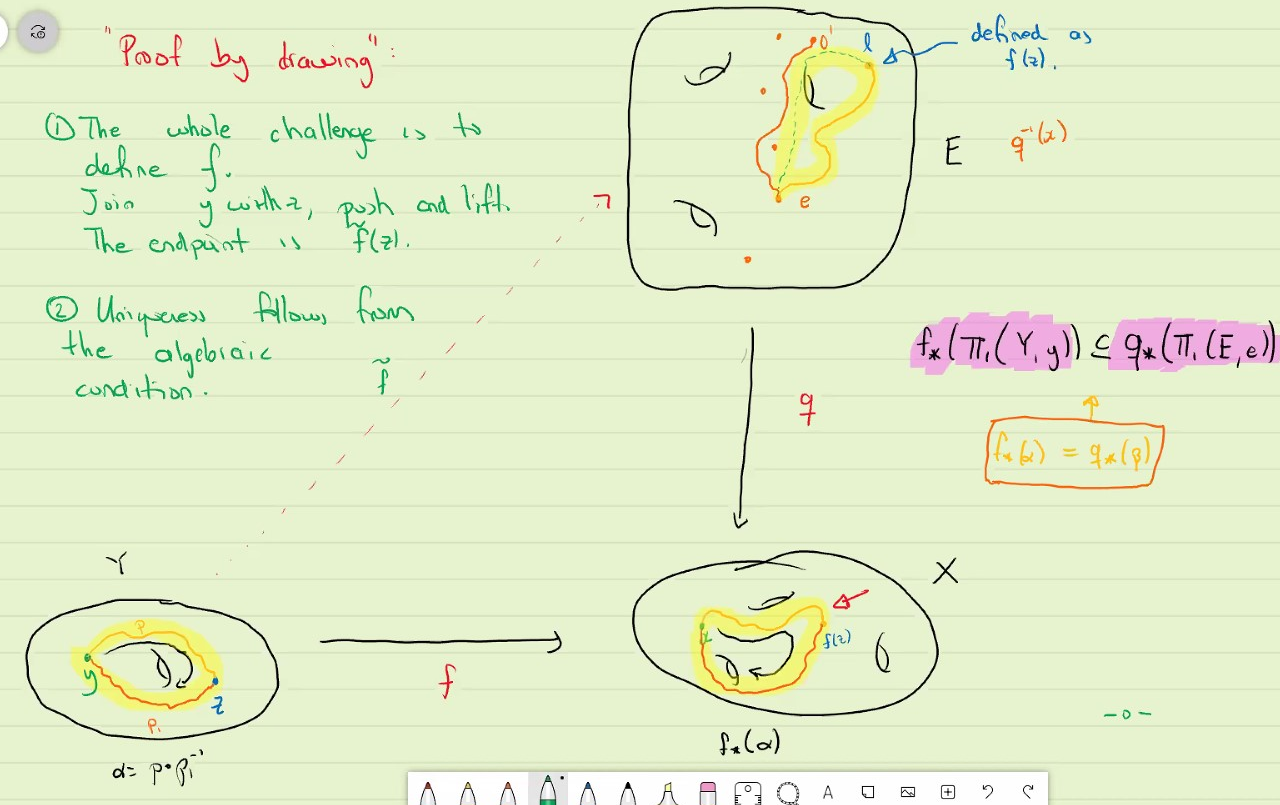 "Proof by drawing":
① The whole challenge is to
define f̃.
Join y with z, push and lift.
The endpoint is f̃(z).
② Uniqueness follows from
the algebraic
condition.
f̃
o'
l
defined as
f̃(z).
e
E
q⁻¹(x)
q
f*(π₁(Y,y)) ⊆ q*(π₁(E,e))
f*(α) = q*(β)
Y
y
p
p₁
z
α = p·p₁⁻¹
f
X
x
f(z)
f*(α)
-o-
A